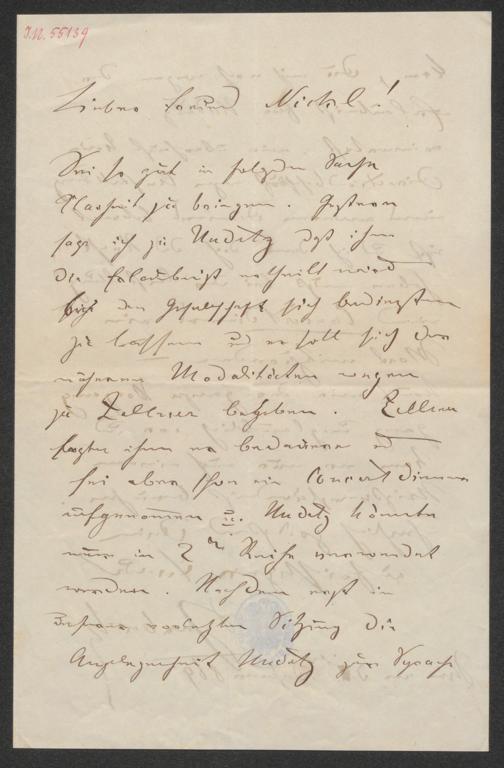 I.N. 55139
Lieber Freund Nickel!
Sei so gut in folgender Sache
Klarheit zu bringen. Gestern
sage ich zu Unditz daß ihm
die Erlaubniß ertheilt wird
bei der Gesellschaft sich bedingsten
zu lassen und er soll sich der
näheren Modalitäten wegen
zu Zellner begeben. Zellner
sagte ihm er bedauere es
sei aber schon ein Concertdiener
aufgenommen etc. Unditz könnte
nur in 2ter Reihe verwendet
werden. Nachdem erst in
unserer vorletzten Sitzung die
Angelegenheit Unditz zur Sprache